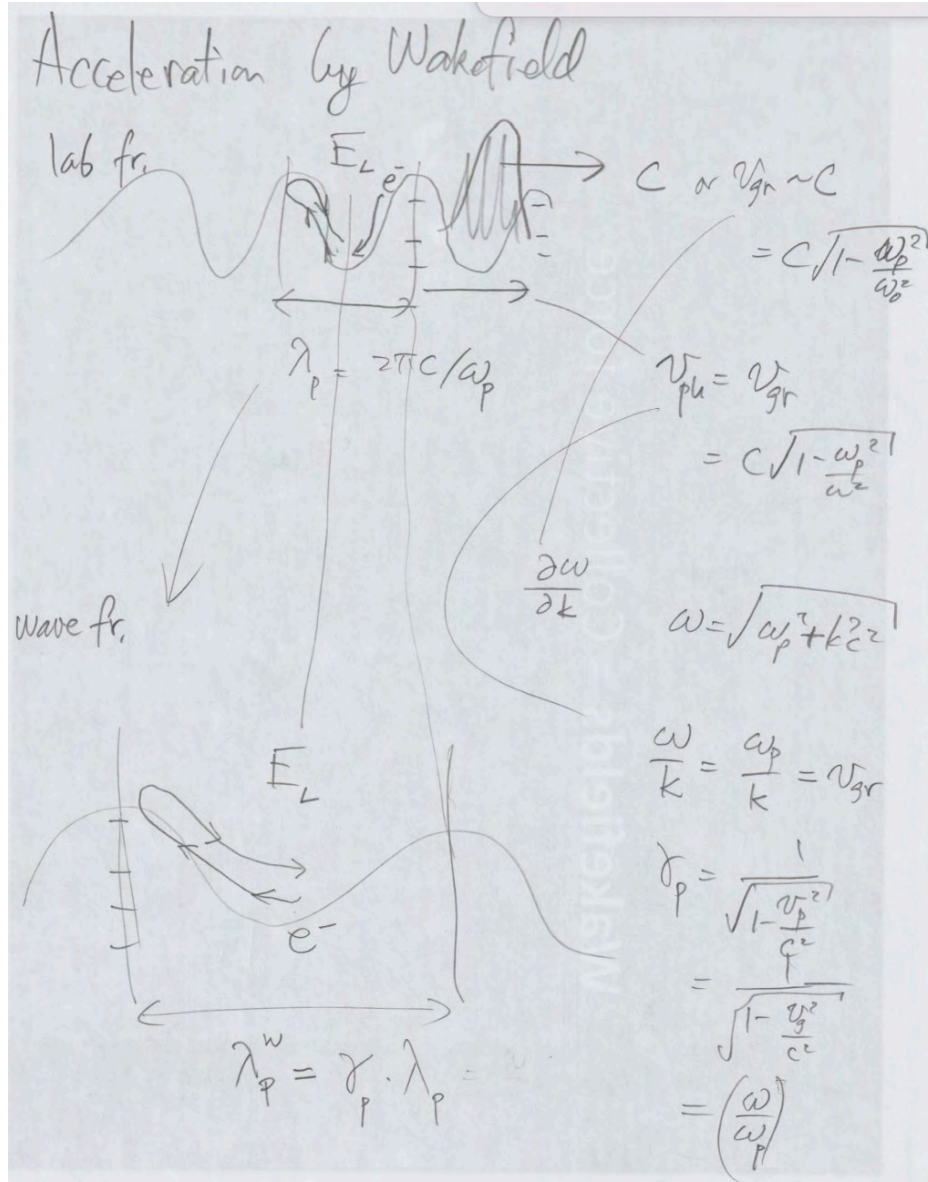 Acceleration by Wakefield
lab fr.
E_L
e⁻
C or v_gr ~ C
= C√(1 - ω_p²/ω_0²)
λ_p = 2πC/ω_p
v_ph = v_gr
= C√(1 - ω_p²/ω²)
∂ω/∂k
ω = √(ω_p² + k²c²)
wave fr.
ω/k = ω_p/k = v_gr
E_L
γ_p = 1/√(1 - v_p²/c²)
e⁻
= 1/√(1 - v_g²/c²)
λ_p^w = γ_p · λ_p =
= (ω/ω_p)